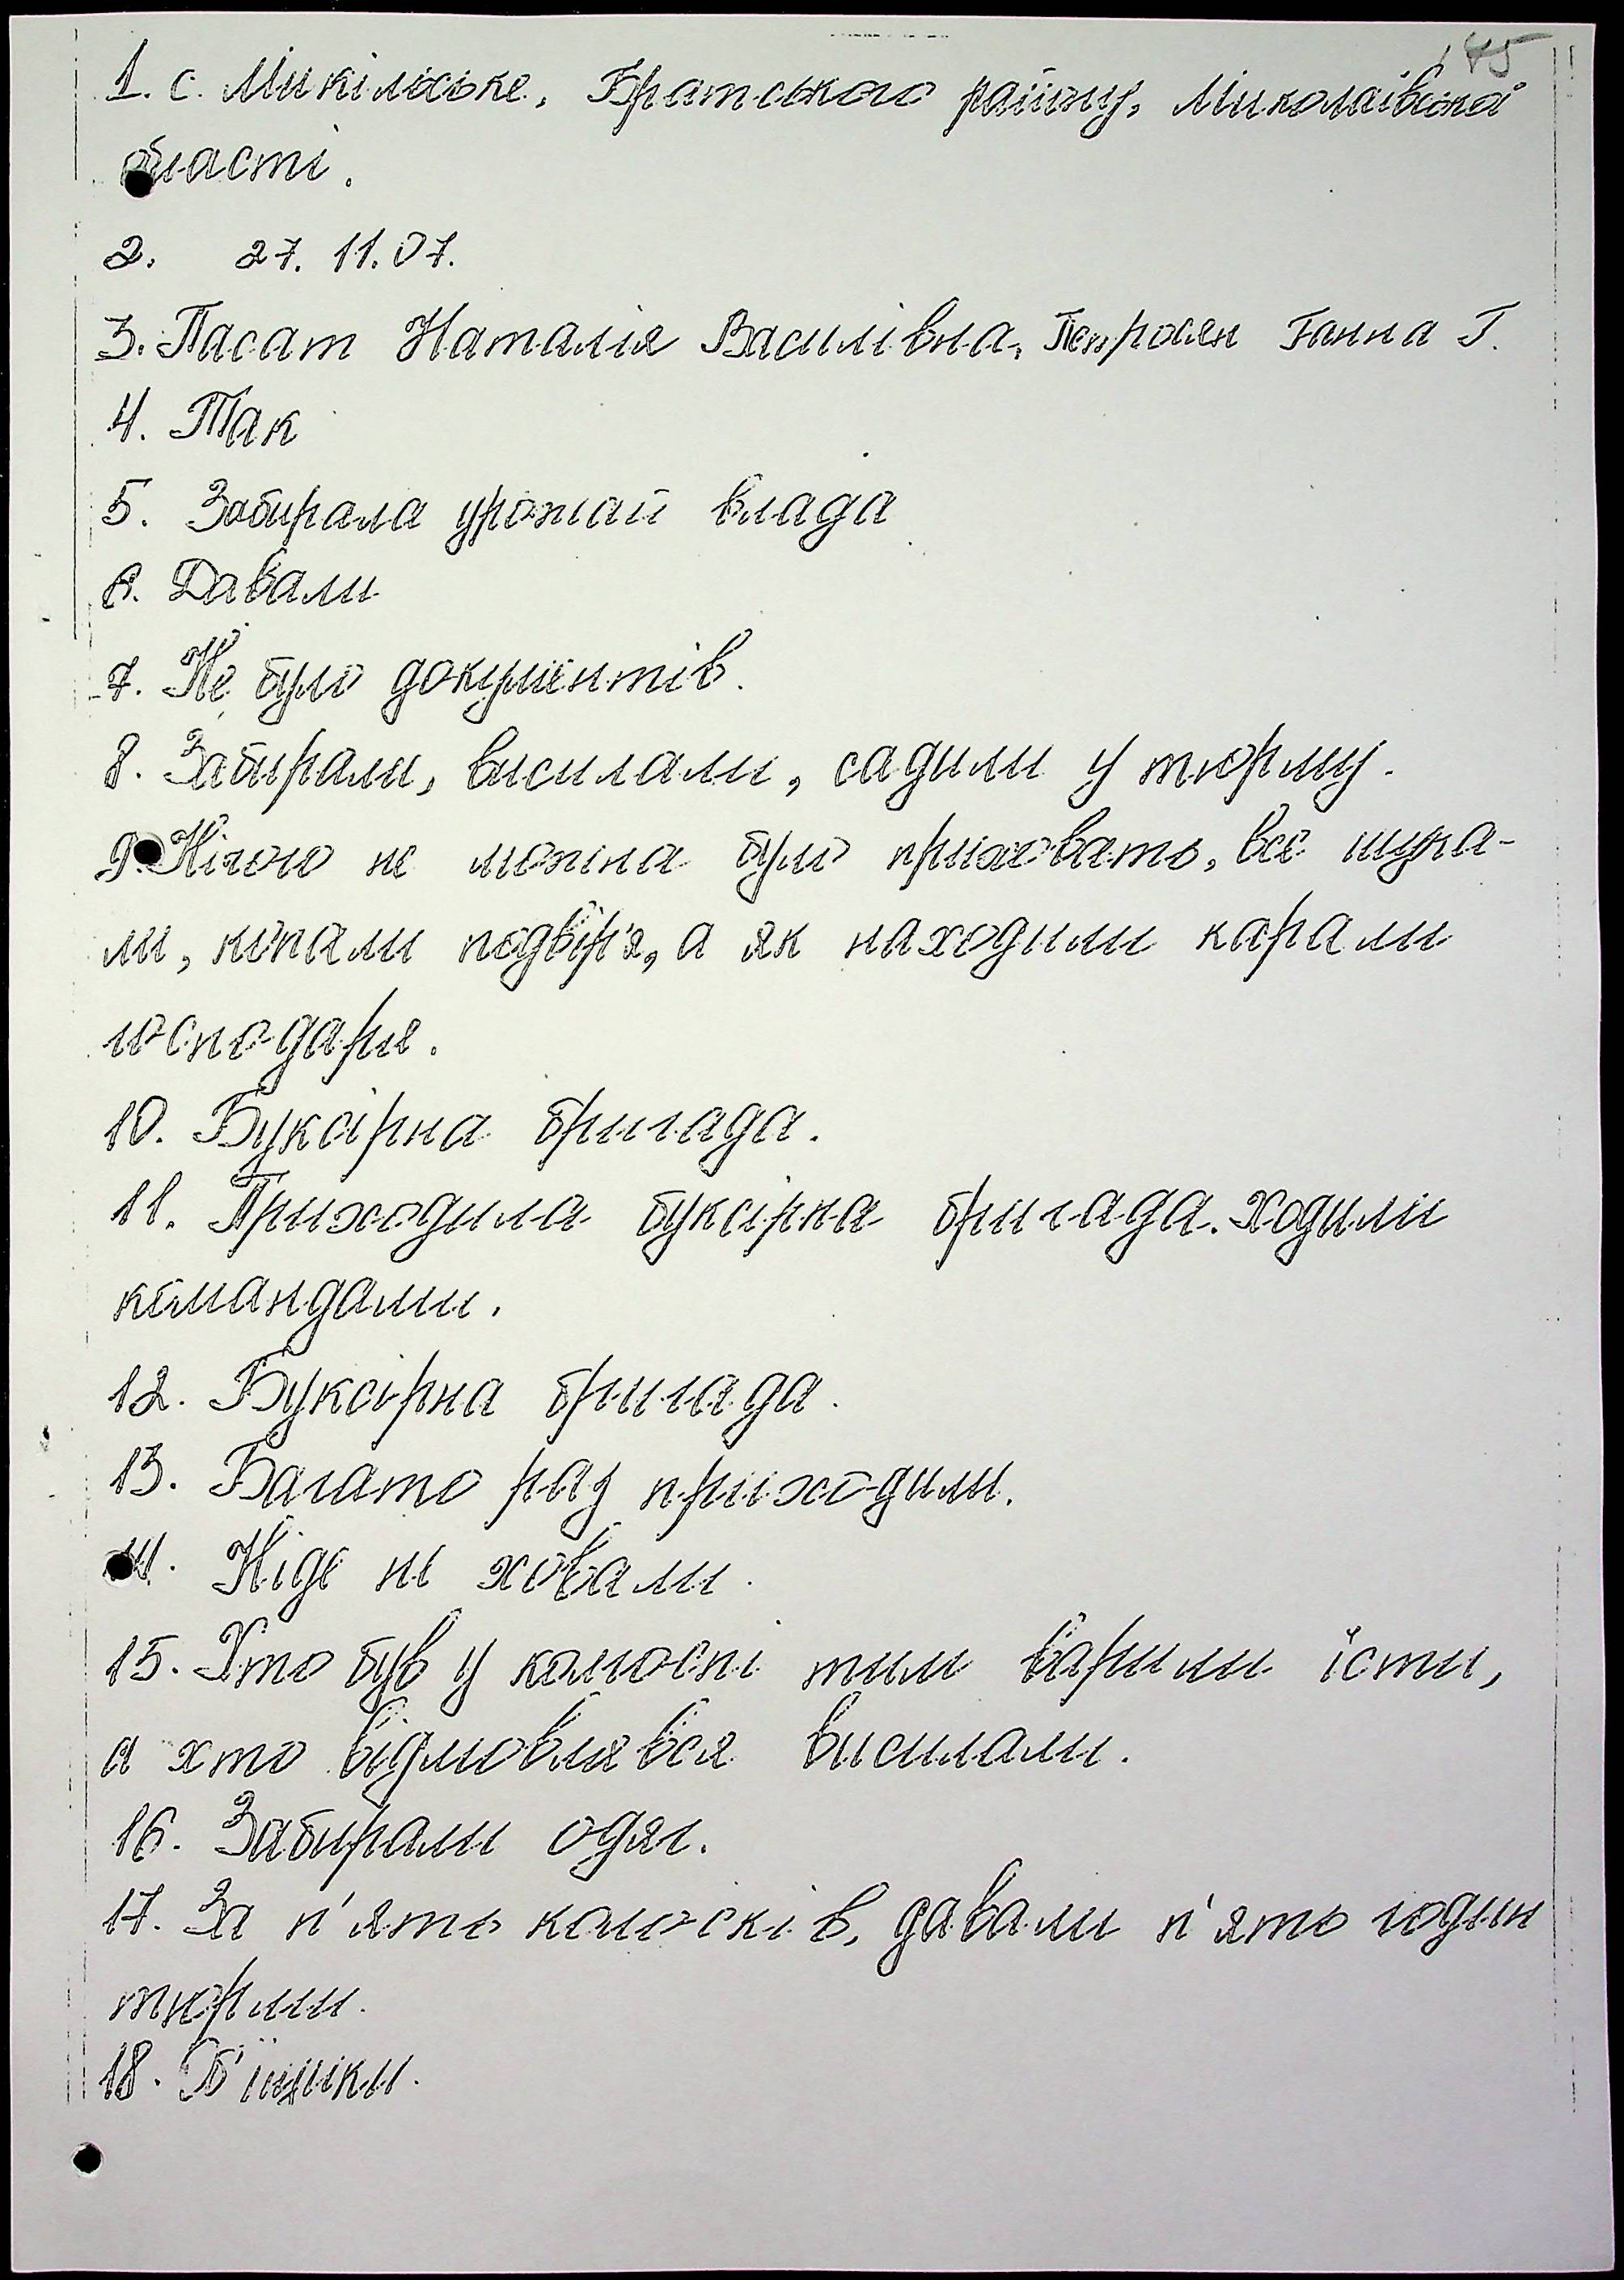 145
1. с. Микільське, Братського району, Миколаївської
області.
2. 27. 11. 07.
3. Пасат Наталія Василівна, Петросян Ганна Г.
4. Так
5. Забирала урожай влада
6. Давали
7. Не було документів.
8. Забирали, висилали, садили у тюрму.
9. Нічого не можна було приховать, все шука-
ли, копали подвір'я, а як находили карали
господаря.
10. Буксірна бригада.
11. Приходила буксірна бригада. Ходили
командами.
12. Буксірна бригада.
13. Багато раз приходили.
14. Ніде не ховали.
15. Хто був у колгоспі тим варили їсти,
а хто відмовлявся висилали.
16. Забирали одяг.
17. За п'ять колосків, давали п'ять годин
тюрми.
18.